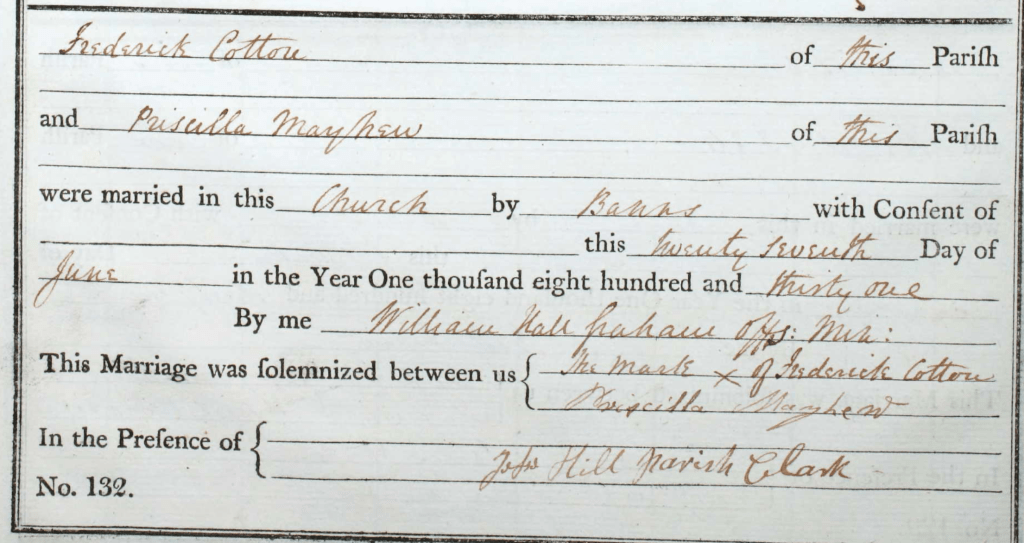 Frederick Cotton of this Pariſh
and Priscilla Mayhew of this Pariſh
were married in this Church by Banns with Conſent of
this twenty seventh Day of
June in the Year One thouſand eight hundred and thirty one
By me William Hall Graham Offg: Minr:
This Marriage was ſolemnized between us The Mark X of Frederick Cotton
Priscilla Mayhew
In the Preſence of
John Hill Parish Clark
No. 132.